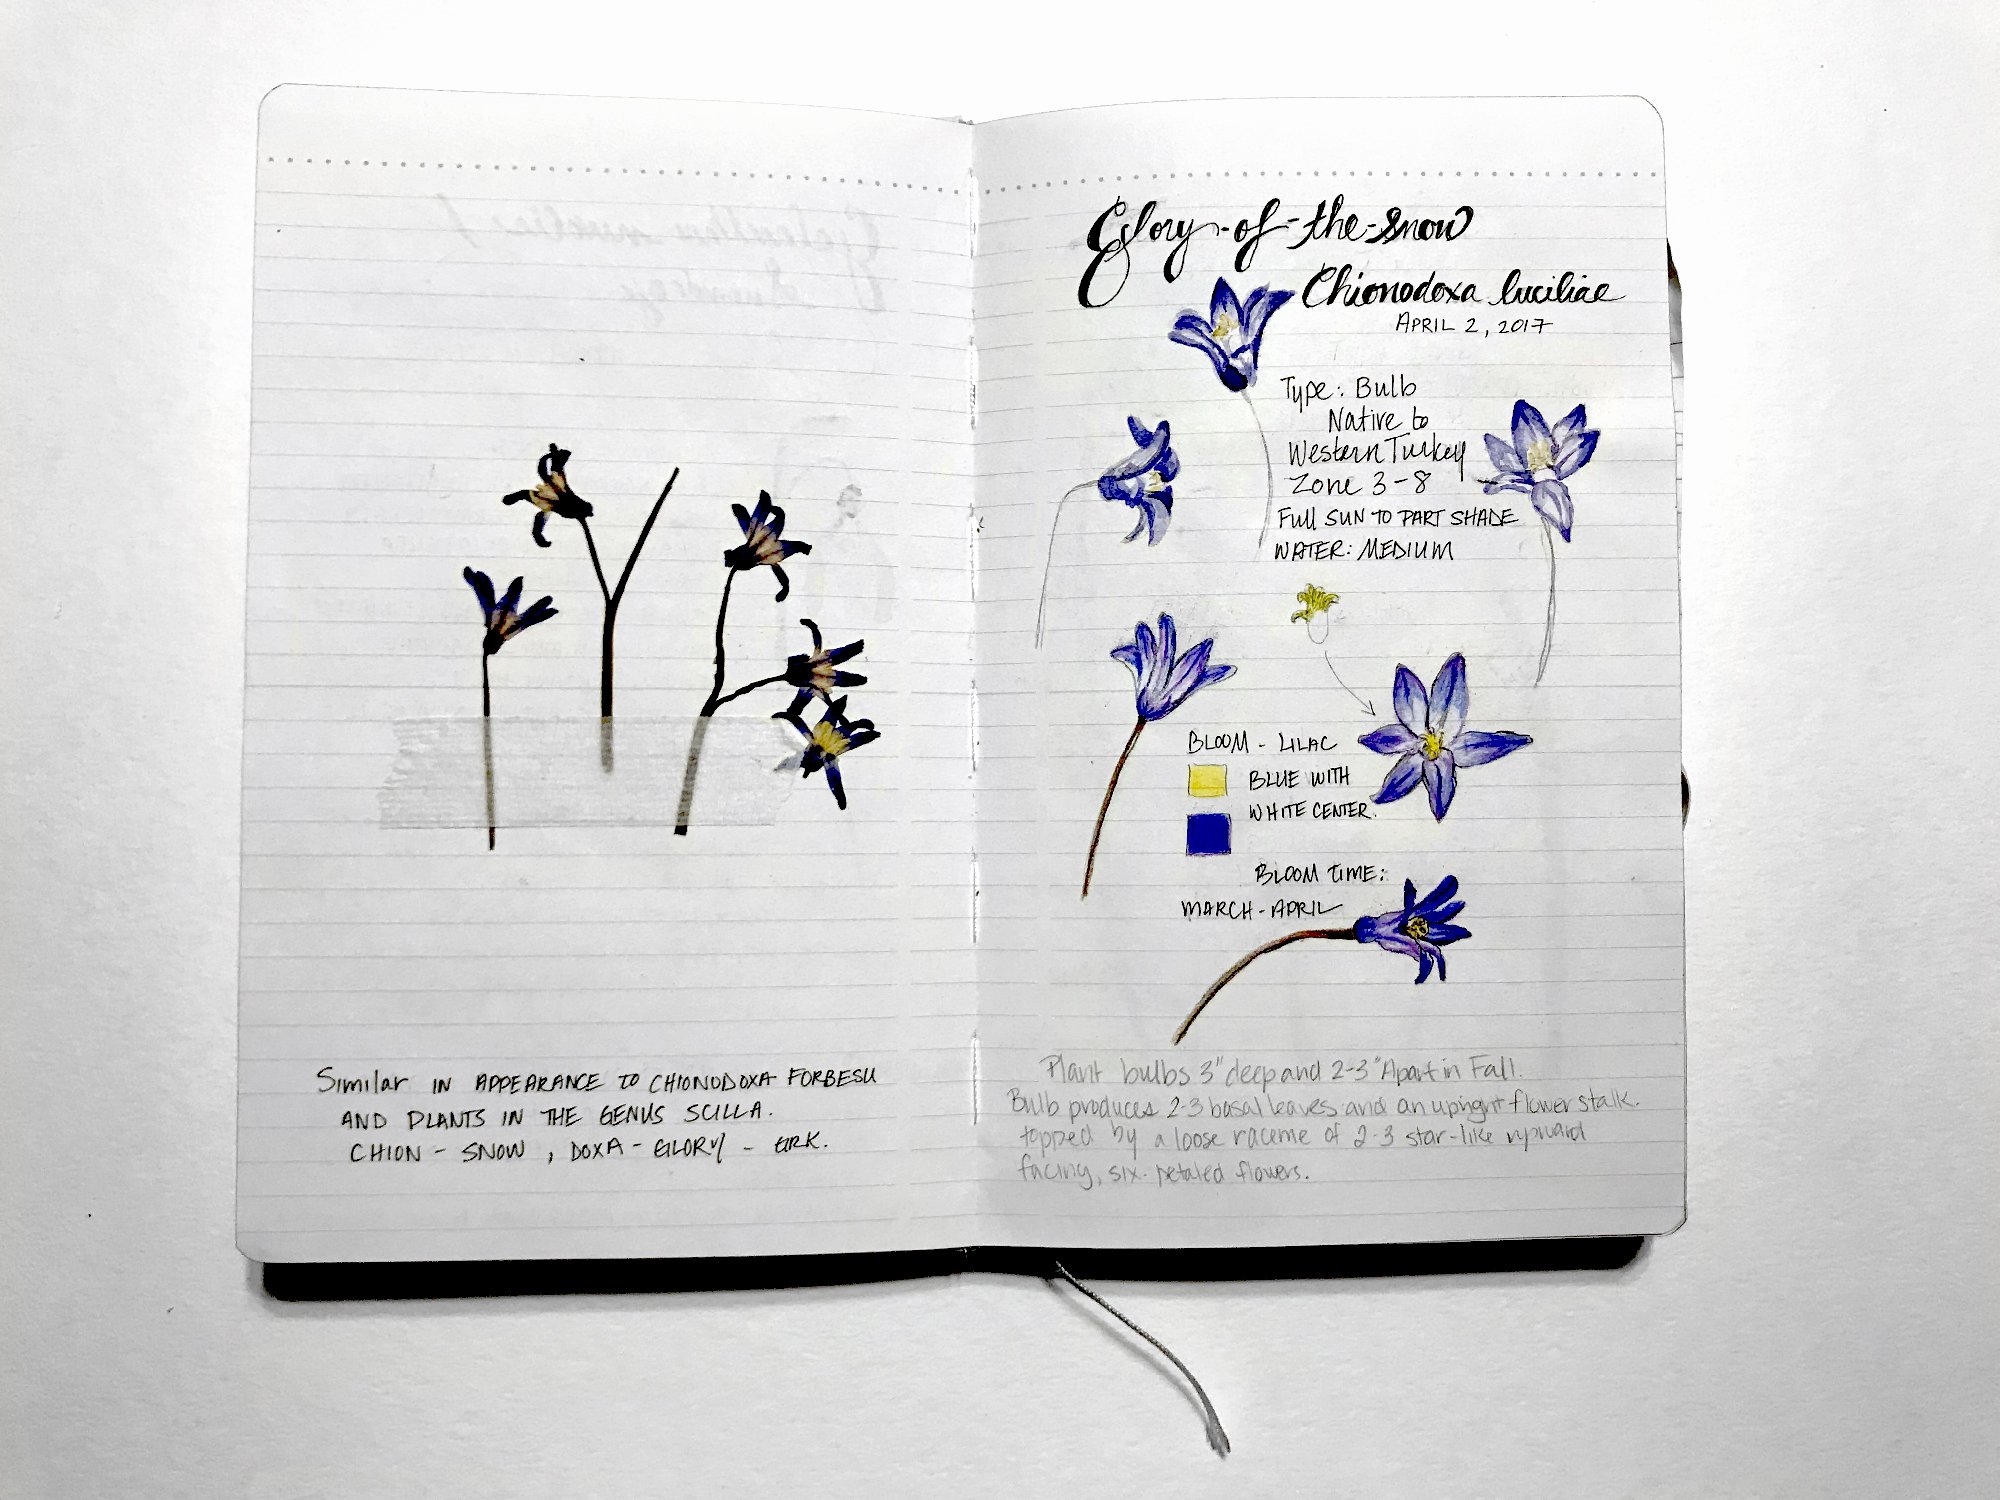 Similar IN APPEARANCE TO CHIONODOXA FORBESII
AND PLANTS IN THE GENUS SCILLA.
CHION - SNOW , DOXA - GLORY - GRK.
Glory-of-the-Snow
Chionodoxa luciliae
APRIL 2, 2017
Type: Bulb
Native to
Western Turkey
Zone 3-8
Full SUN TO PART SHADE
WATER: MEDIUM
BLOOM - LILAC
BLUE WITH
WHITE CENTER.
BLOOM TIME:
MARCH-APRIL
Plant bulbs 3" deep and 2-3" Apart in Fall.
Bulb produces 2-3 basal leaves and an upright flower stalk.
topped by a loose raceme of 2-3 star-like upward
facing, six-petaled flowers.